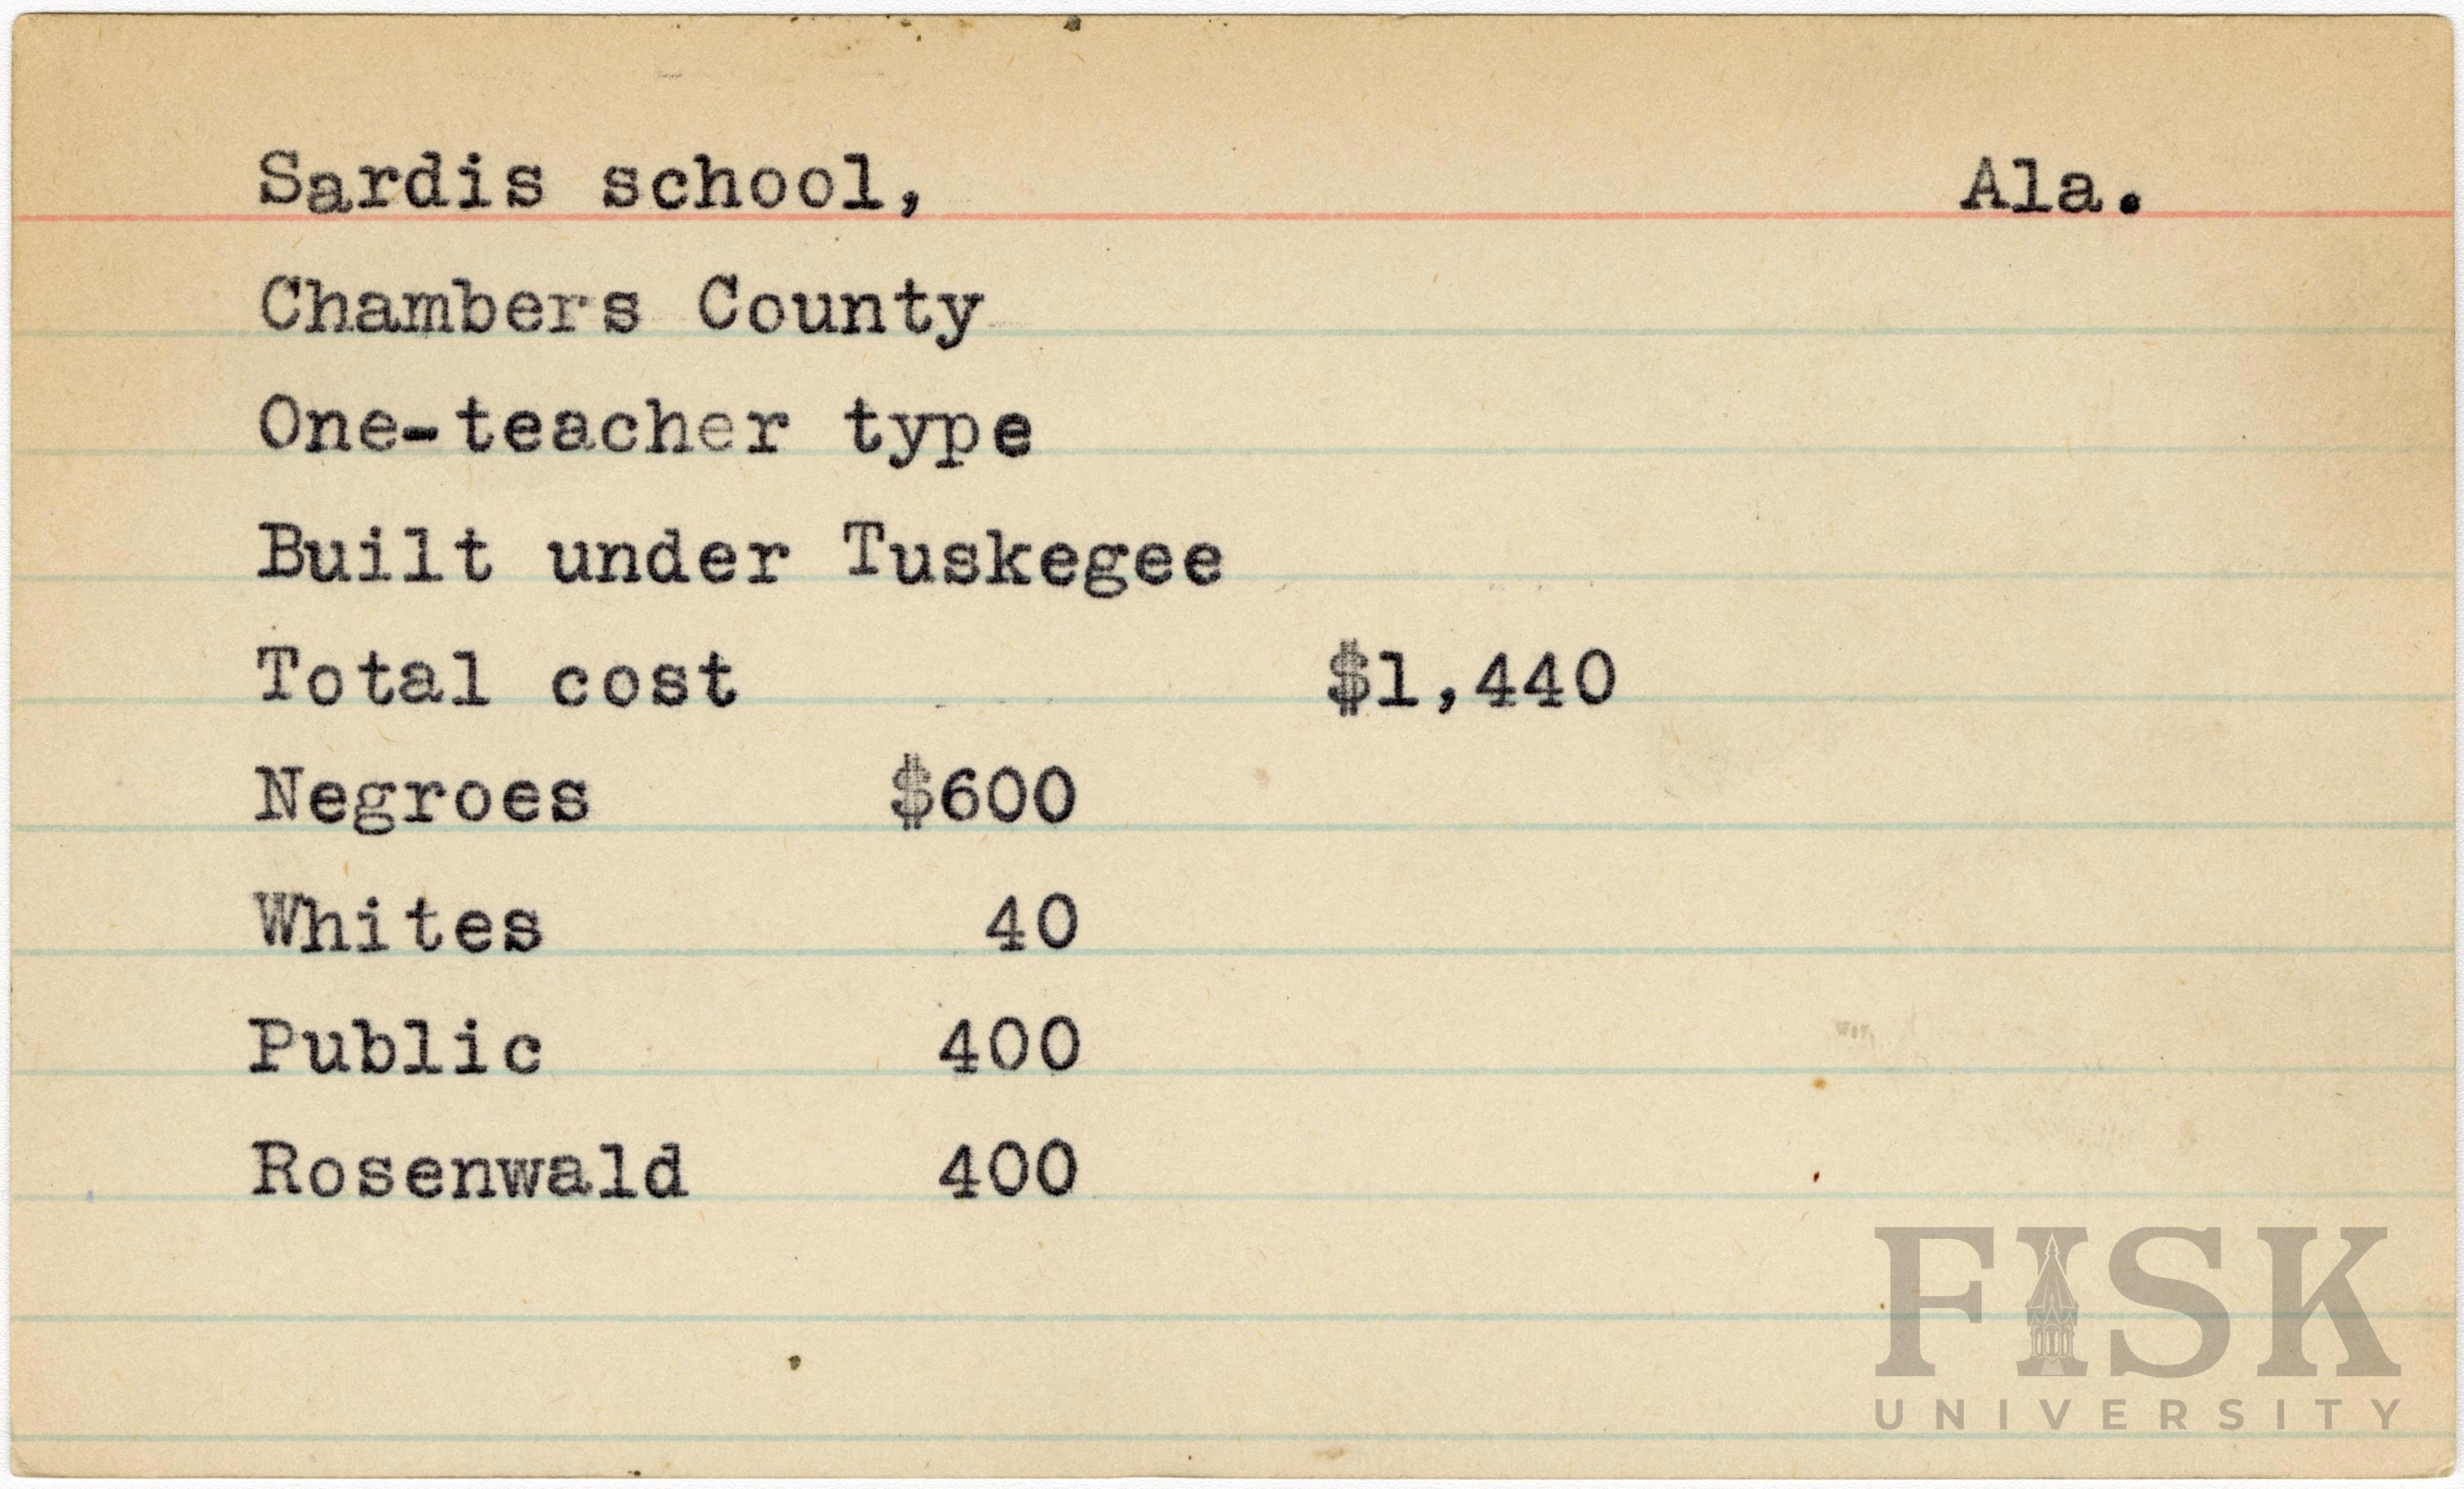 Sardis school, Ala.
Chambers County
One-teacher type
Built under Tuskegee
Total cost $1,440
Negroes $600
Whites 40
Public 400
Rosenwald 400
FISK
UNIVERSITY